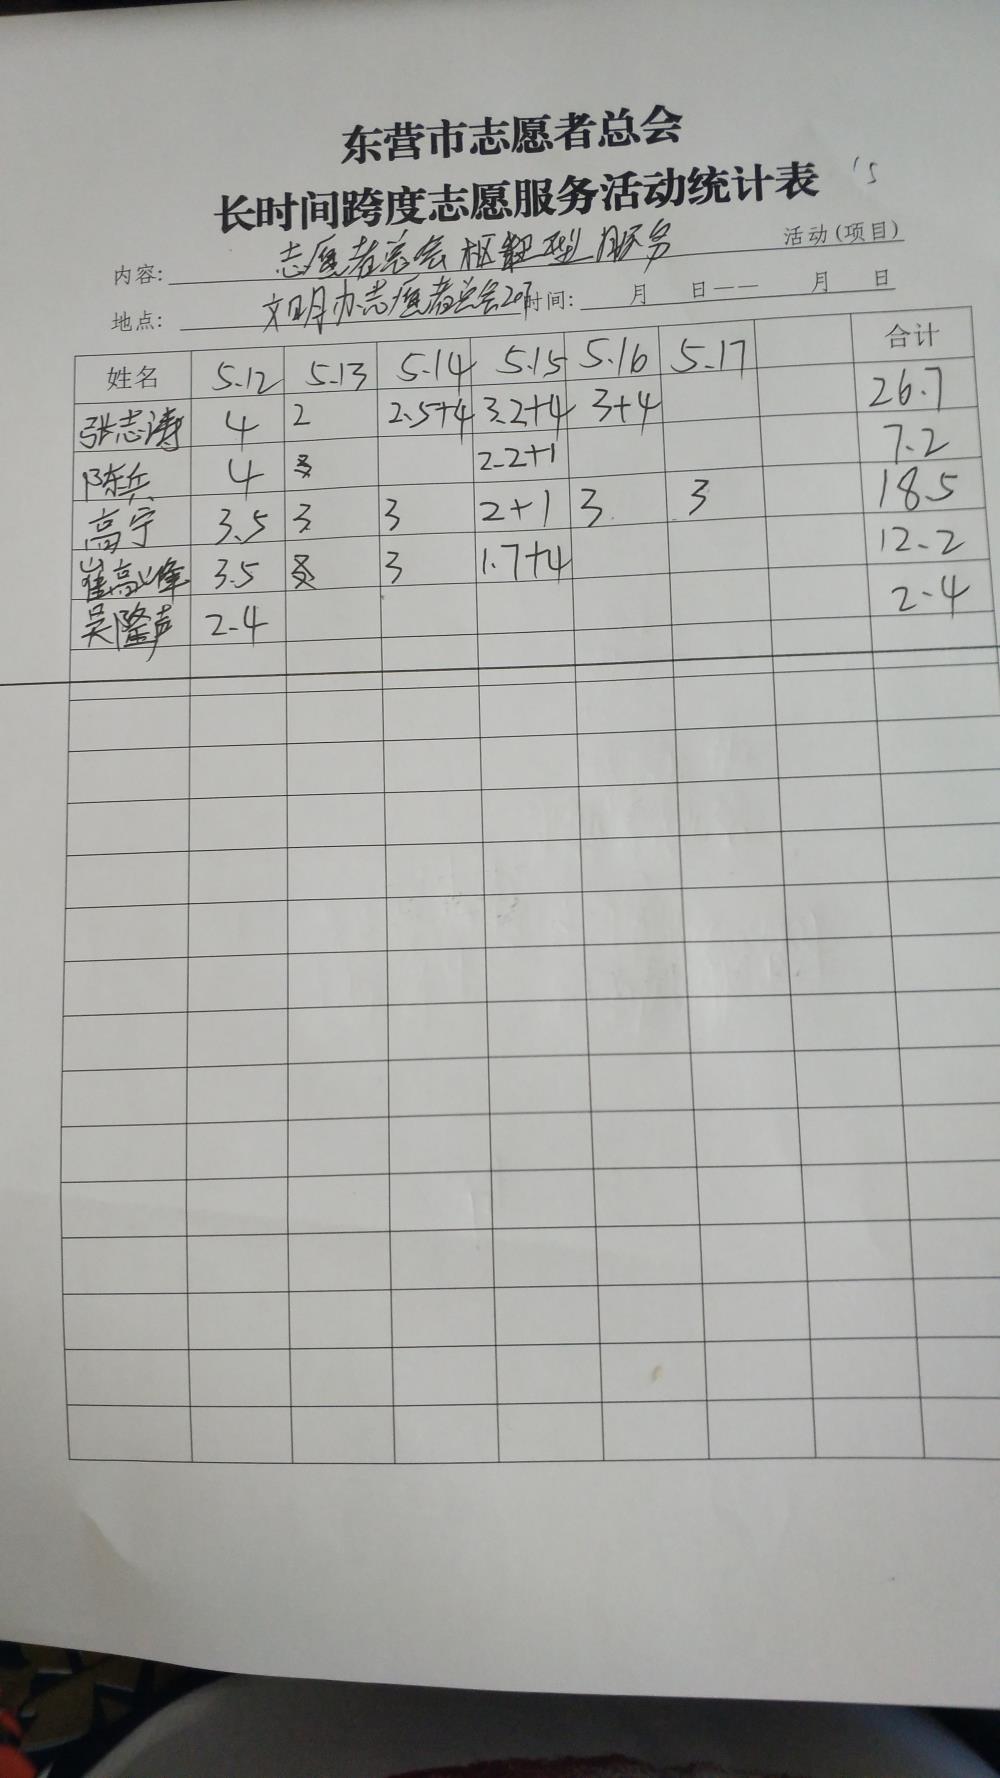 东营市志愿者总会
长时间跨度志愿服务活动统计表 15
内容: 志愿者总会枢纽型服务 活动(项目)
地点: 文明办志愿者总会207 时间: 月 日—— 月 日
姓名 5.12 5.13 5.14 5.15 5.16 5.17 合计
张志涛 4 2 2.5+4 3.2+4 3+4 26.7
陈兵 4 2.2+1 7.2
高宁 3.5 3 3 2+1 3 3 18.5
崔高峰 3.5 3 1.7+4 12.2
吴隆声 2.4 2.4